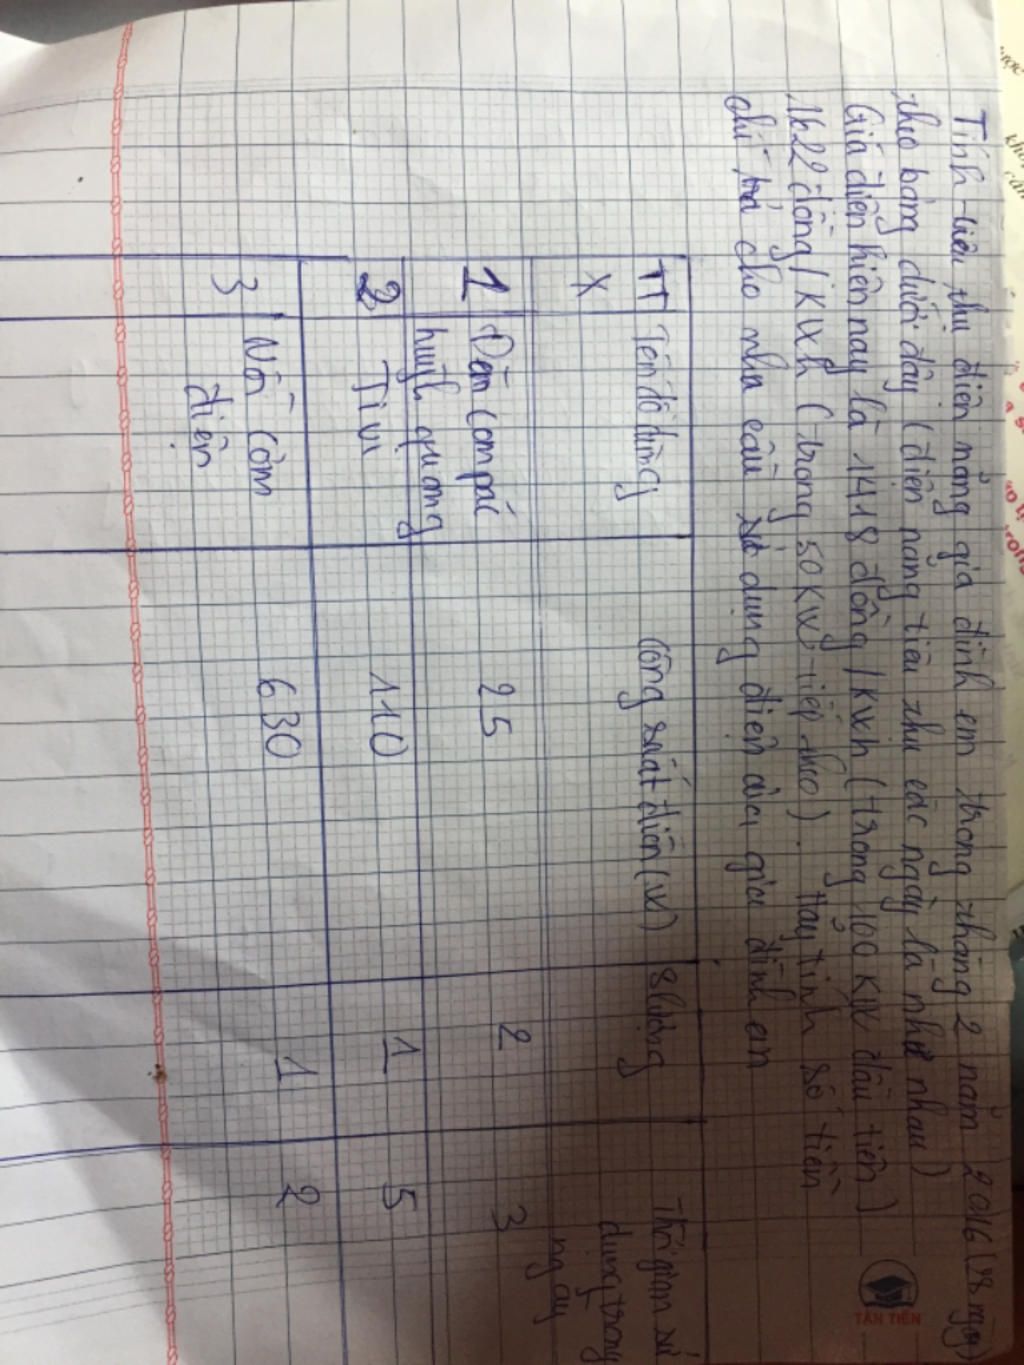 Tính tiêu thụ điện năng gia đình em trong tháng 2 năm 2016 (28 ngày)
theo bảng dưới đây (điện năng tiêu thụ các ngày là như nhau)
Giá điện hiện nay là 1418 đồng/KWh (trong 100 KW đầu tiên)
1622 đồng/KWh (trong 50KW tiếp theo). Hãy tính số tiền
chi trả cho nhu cầu sử dụng điện của gia đình em
TT Tên đồ dùng Công suất điện (W) S lượng Thời gian sử
X dụng trong
ngay
1 Đèn Compắc 25 2 3
huỳnh quang
2 Ti vi 110 1 5
3 Nồi Cơm 630 1 2
điện
TÂN TIẾN